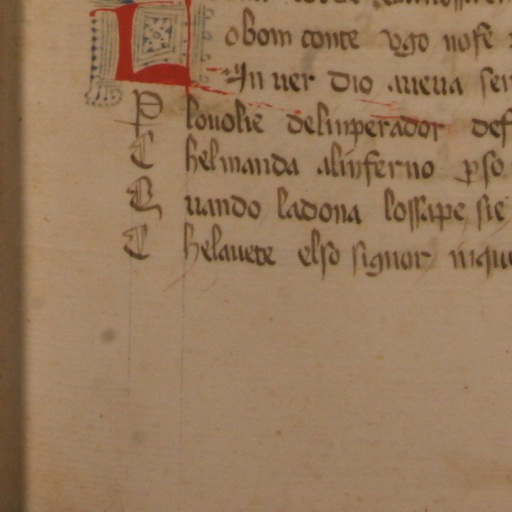 L obom conte vgo nofe
In uer dio aueua sen
P louolie delinperador def
C helmanda alinferno pso
Q uando ladona lossape sie
C helauete elso signor inqu